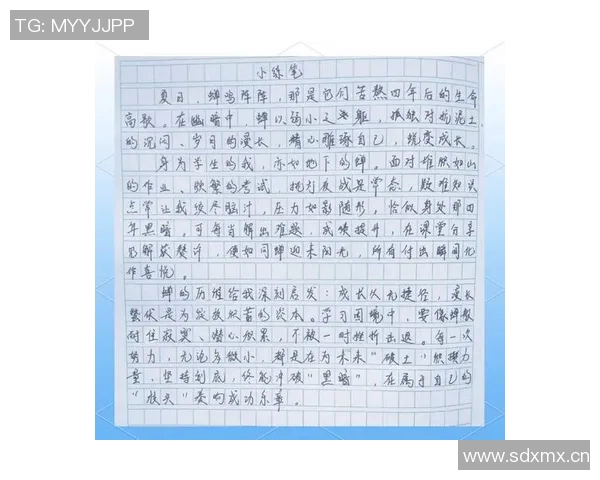 TG: MYYJJPP
小练笔
夏日，蝉鸣阵阵，那是它们苦熬四年后的生命
高歌。在幽暗中，蝉以弱小之躯，孤独对抗泥土
的沉闷、岁月的漫长，精心雕琢自己，蜕变成长。
身为学生的我，亦如地下的蝉。面对堆积如山
的作业、频繁的考试，挑灯夜战是常态，疑难知识
点常让我绞尽脑汁，压力如影随形，恰似身处那四
年黑暗。可每当解出难题，成绩提升，在课堂分享
见解获赞许，便如同蝉迎来阳光，所有付出瞬间化
作喜悦。
蝉的历程给我深刻启发：成长从无捷径，漫长
蛰伏是为绽放积蓄的资本。学习困境中，要像蝉般
耐住寂寞、潜心积累，不被一时挫折击退。每一次
努力，无论多微小，都是在为未来“破土”积攒力
量，坚持到底，终能冲破“黑暗”，在属于自己的
“枝头”奏响成功乐章。
www.sdxmx.cn